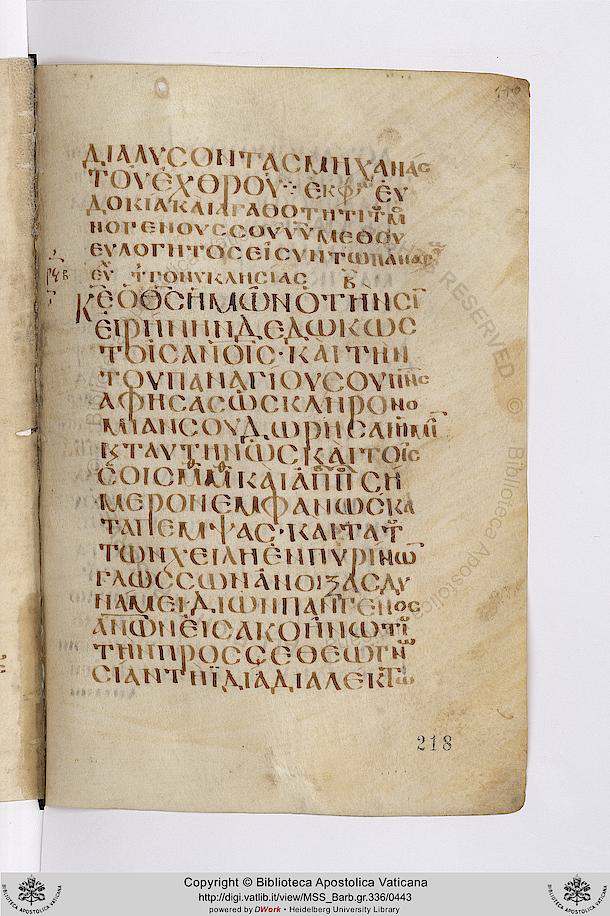 ΔΙΑΛΥϹΟΝΤΑϹΜΗΧΑΝΑϹ
ΤΟΥΕΧΘΡΟΥ ΕΚΦ ΕΥ
ΔΟΚΙΑΚΑΙΑΓΑΘΟΤΗΤΙΤΜ
ΝΟΓΕΝΟΥϹϹΟΥΥΥΜΕΘΟΥ
ΕΥΛΟΓΗΤΟϹΕΙϹΥΝΤΩΠΑΝΑΓ
ΕΥ ΤΓΟΝΥΚΛΗϹΙΑϹ Β
ϞΒ
ΚΕΟΘϹΗΜΩΝΟΤΗΝϹΓ
ΕΙΡΗΝΗΝΔΕΔΩΚΩϹ
ΤΟΙϹΑΝΟΙϹ·ΚΑΙΤΗΝ
ΤΟΥΠΑΝΑΓΙΟΥϹΟΥΠΝϹ
ΑΦΗϹΑϹΩϹΚΛΗΡΟΝΟ
ΜΙΑΝϹΟΥΔΩΡΗϹΑΙΗΜΙ
ΚΤΑΥΤΗΝΩϹΚΑΙΤΟΙϹ
ϹΟΙϹΜΜΚΑΙΑΠΠϹΗ
ΜΕΡΟΝΕΜΦΑΝΩϹΚΑ
ΤΑΠΕΜΨΑϹ·ΚΑΙΤΑΤ
ΤΩΝΧΕΙΛΗΕΝΠΥΡΙΝΩ
ΓΛΩϹϹΩΝΑΝΟΙΞΑϹΔΥ
ΝΑΜΕΙ·ΔΙΩΝΠΑΝΓΕΝΟϹ
ΑΝΩΝΕΙϹΑΚΟΗΝΩΤΙ
ΤΗΝΠΡΟϹϹΕΘΕΩΓΝ
ϹΙΑΝΤΗΙΔΙΑΔΙΑΛΕΚΤΩ
218
RESERVED ©
Biblioteca Apostolica
Copyright © Biblioteca Apostolica Vaticana
http://digi.vatlib.it/view/MSS_Barb.gr.336/0443
powered by DWork • Heidelberg University Library
BIBLIOTECA APOSTOLICA VATICANA
BIBLIOTECA APOSTOLICA VATICANA